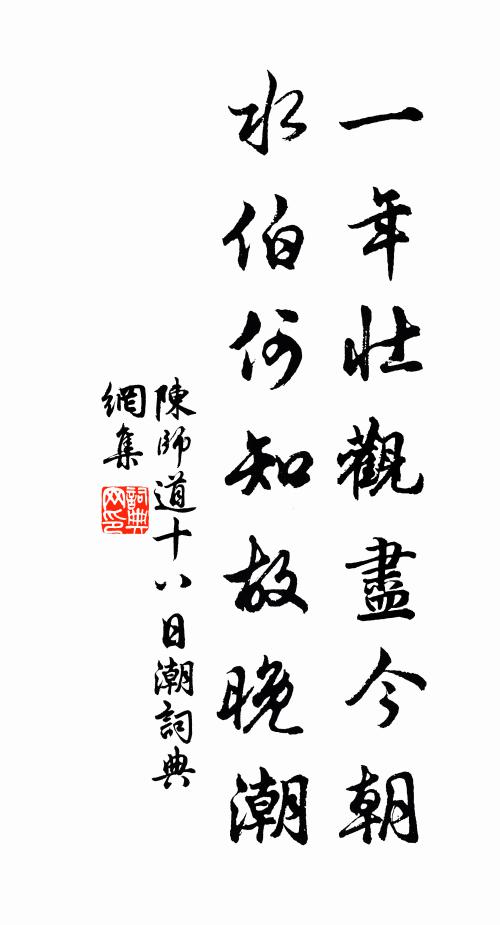 一年壯觀盡今朝
水伯何知故晚潮
陳師道十八日潮詞典
網集
詞典
网印